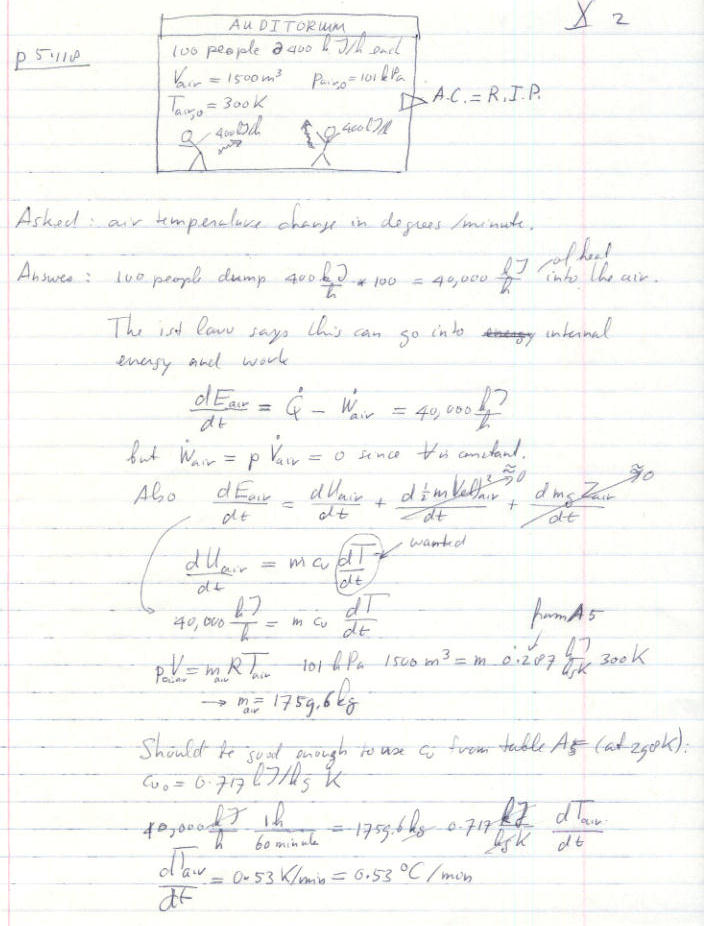 X 2
p 5.118
AUDITORIUM
100 people @ 400 kJ/h each
V_air = 1500 m³ p_air,0 = 101 kPa
T_air,0 = 300 K
A.C. = R.I.P.
400 kJ/h 400 kJ/h
Asked: air temperature change in degrees/minute.
Answer: 100 people dump 400 kJ/h * 100 = 40,000 kJ/h of heat into the air.
The 1st law says this can go into energy internal
energy and work
dE_air/dt = Q̇ - Ẇ_air = 40,000 kJ/h
but Ẇ_air = p V̇_air = 0 since V is constant.
Also dE_air/dt = dU_air/dt + d ½ m Vel²_air/dt ≈0 + d m g Z_air/dt ≈0
dU_air/dt = m c_v dT/dt wanted
40,000 kJ/h = m c_v dT/dt
from A5
p_air V = m_air R T_air 101 kPa 1500 m³ = m 0.287 kJ/kg K 300 K
→ m_air = 1759.6 kg
Should be good enough to use c_v from table A5 (at 298K):
c_v0 = 0.717 kJ/kg K
40,000 kJ/h 1h/60 minute = 1759.6 kg 0.717 kJ/kg K dT_air/dt
dT_air/dt = 0.53 K/min = 0.53 °C/min